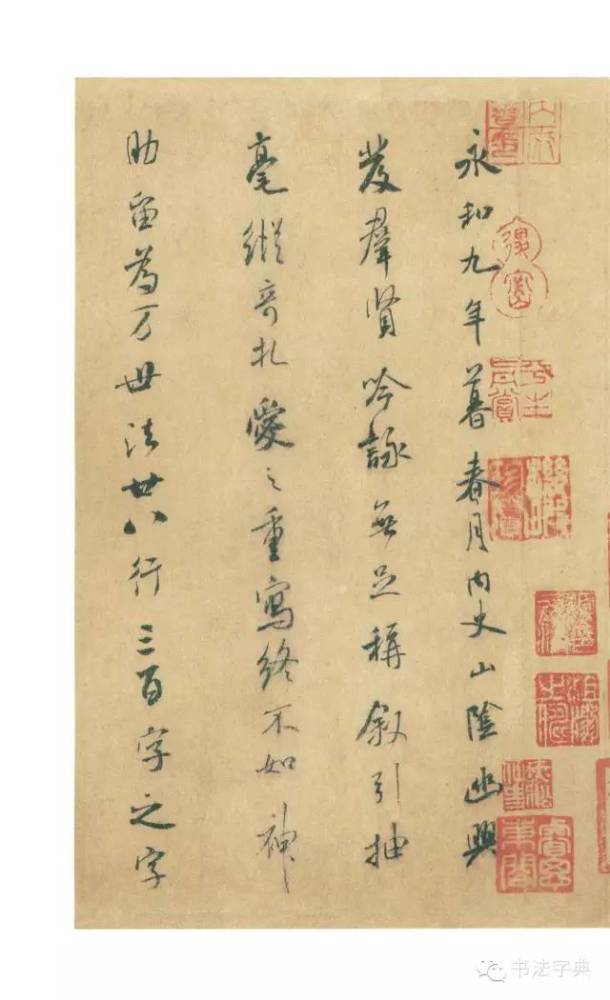 永和九年暮春月内史山陰幽興
發羣賢吟詠無足稱叙引抽
毫縱奇札愛之重寫終不如神
助留為万世法廿八行三百字之字
书法字典